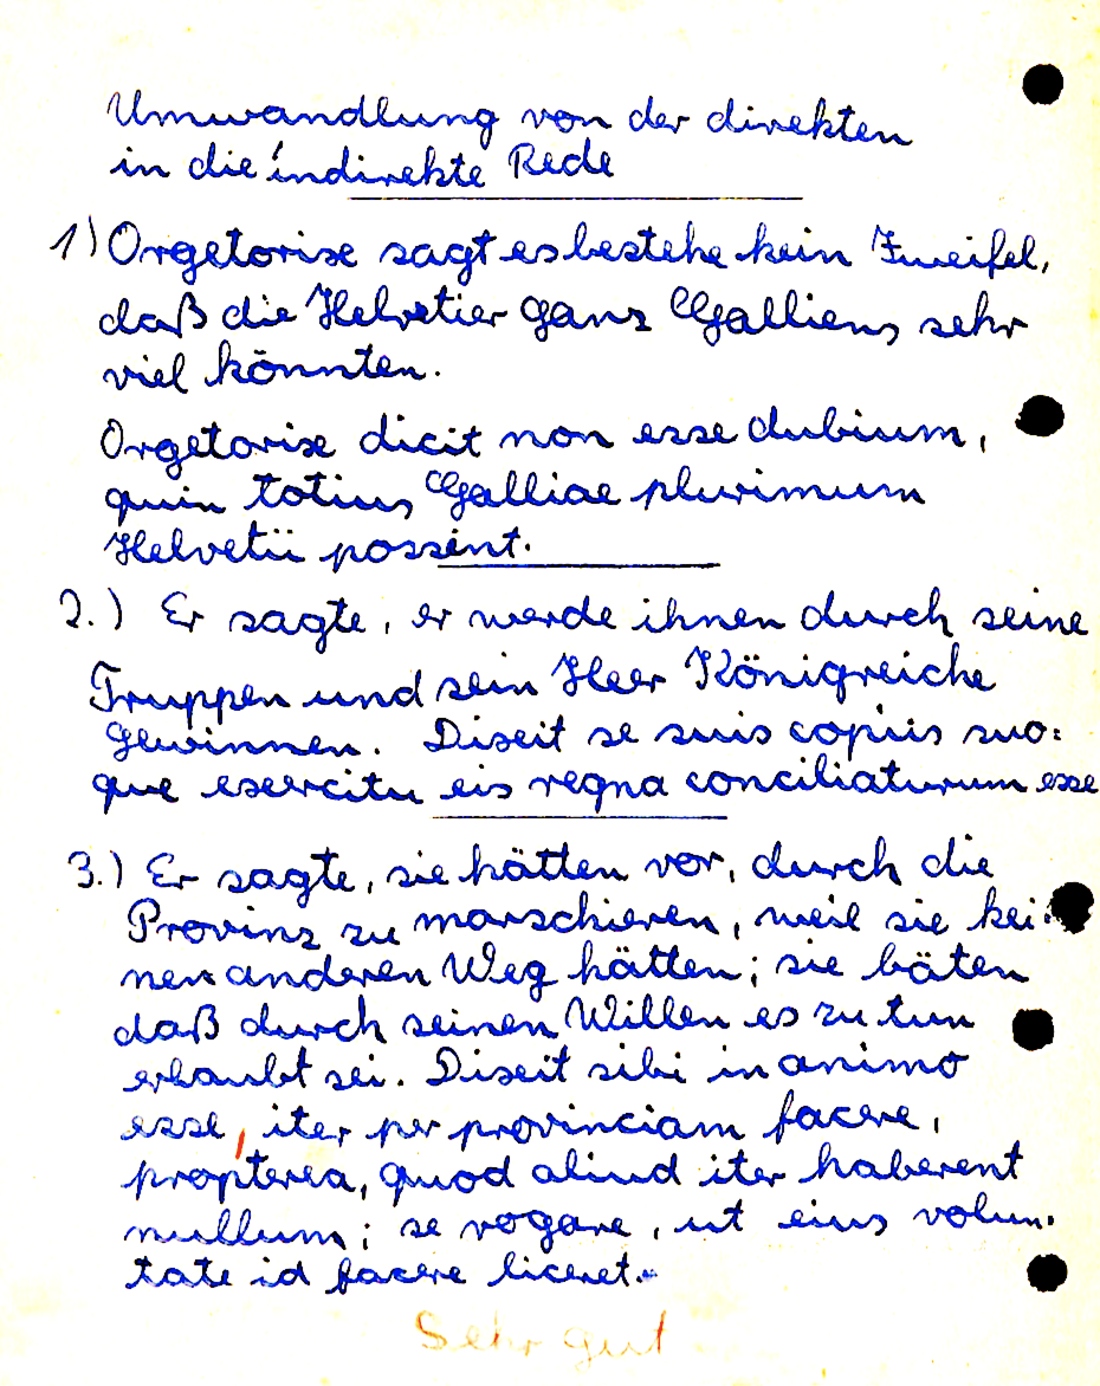 Umwandlung von der direkten
in die indirekte Rede
1) Orgetorix sagt es bestehe kein Zweifel,
daß die Helvetier ganz Galliens sehr
viel könnten.
Orgetorix dicit non esse dubium,
quin totius Galliae plurimum
Helvetii possent.
2.) Er sagte, er werde ihnen durch seine
Truppen und sein Heer Königreiche
gewinnen. Dixit se suis copiis suo=
que exercitu eis regna conciliaturum esse
3.) Er sagte, sie hätten vor, durch die
Provinz zu marschieren, weil sie kei-
nen anderen Weg hätten; sie bäten
daß durch seinen Willen es zu tun
erlaubt sei. Dixit sibi in animo
esse, iter per provinciam facere,
propterea, quod aliud iter haberent
nullum; se rogare, ut eius volun-
tate id facere liceret.
Sehr gut